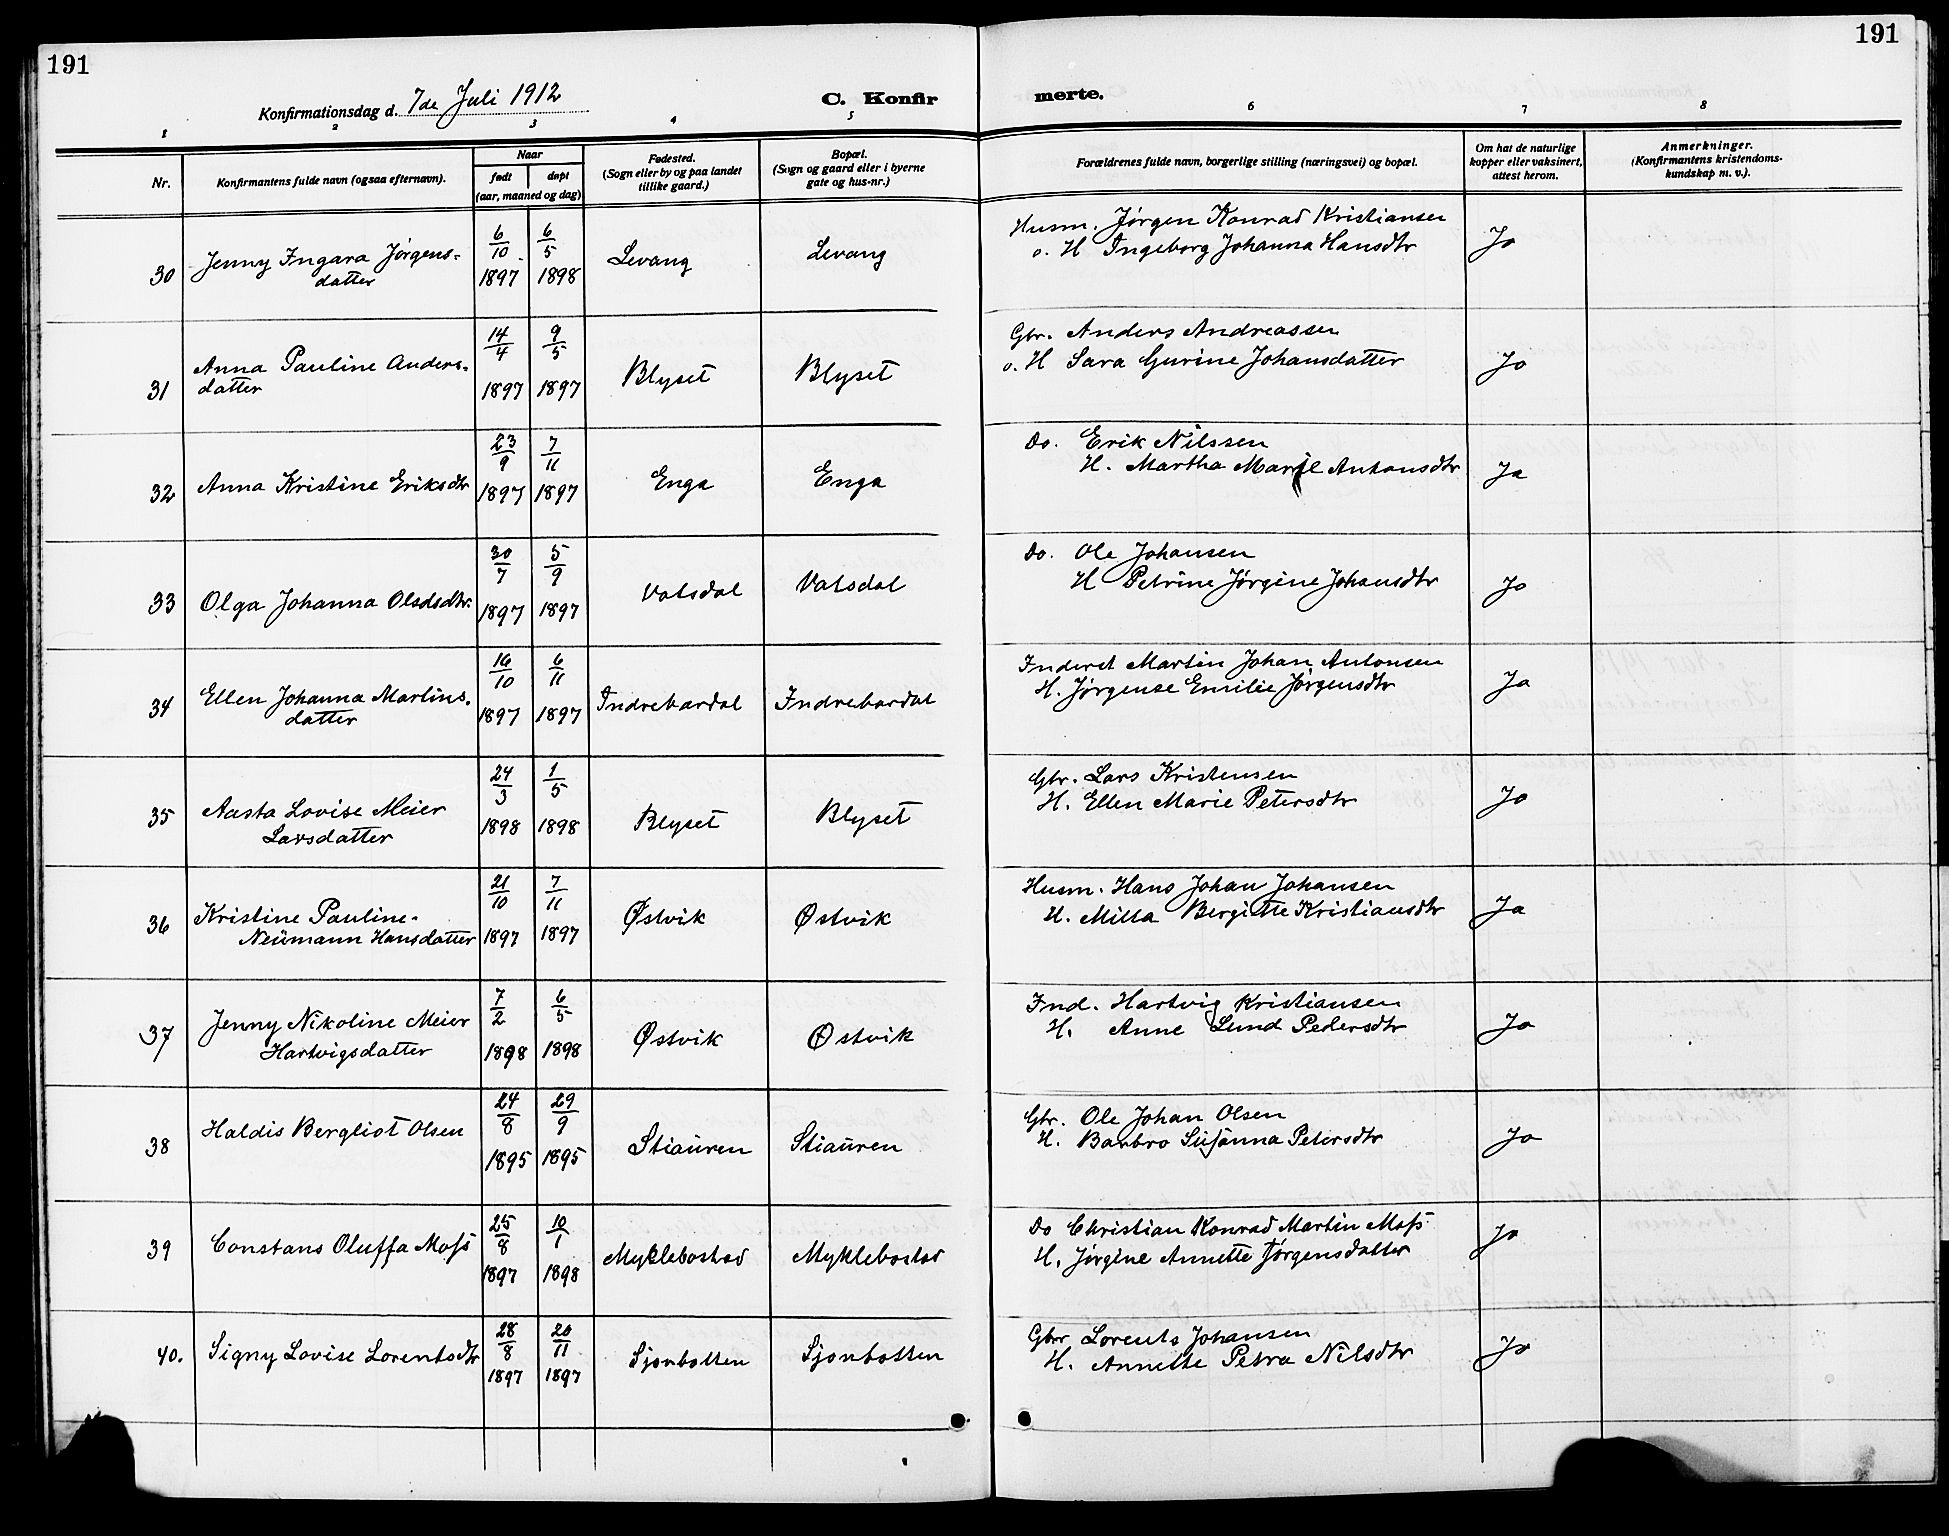 191
191
Konfirmationsdag d. 7de Juli 1912
C. Konfir
merte.
1 2 3 4 5 6 7 8
Nr.
Konfirmantens fulde navn (ogsaa efternavn).
Naar
født
døpt
(aar, maaned og dag)
Fødested.
(Sogn eller by og paa landet
tillike gaard.)
Bopæl.
(Sogn og gaard eller i byerne
gate og hus-nr.)
Forældrenes fulde navn, borgerlige stilling (næringsvei) og bopæl.
Om hat de naturlige
kopper eller vaksinert,
attest herom.
Anmerkninger.
(Konfirmantens kristendoms-
kundskap m. v.).
30 Jenny Ingara Jørgens-
datter
6/10 1897
6/5 1898
Levang
Levang
Husm. Jørgen Konrad Kristiansen
o. H Ingeborg Johanna Hansdtr
Ja
31 Anna Pauline Anders-
datter
14/4 1897
9/5 1897
Blyset
Blyset
Gbr. Anders Andreassen
o. H Sara Gurine Johansdatter
Ja
32 Anna Kristine Eriksdtr
23/9 1897
7/11 1897
Enga
Enga
Do. Erik Nilssen
H. Martha Marie Antonsdtr
Ja
33 Olga Johanna Olsdsdtr.
30/7 1897
5/9 1897
Valsdal
Valsdal
Do. Ole Johansen
H Petrine Jørgine Johansdtr
Ja
34 Ellen Johanna Martins.
datter
16/10 1897
6/11 1897
Indrebardal
Indrebardal
Inderst Martin Johan Antonsen
H. Jørgense Emilie Jørgensdtr
Ja
35 Aasta Lovise Meier
Larsdatter
24/3 1898
1/5 1898
Blyset
Blyset
Gbr. Lars Kristensen
H. Ellen Marie Petersdtr
Ja
36 Kristine Pauline-
Neumann Hansdatter
21/10 1897
7/11 1897
Østvik
Østvik
Husm. Hans Johan Johansen
H. Milla Bergitte Kristiansdtr
Ja
37 Jenny Nikoline Meier
Hartvigsdatter
7/2 1898
6/5 1898
Østvik
Østvik
Ind. Hartvig Kristiansen
H. Anne Lund Pedersdtr
Ja
38 Haldis Bergliot Olsen
24/8 1895
29/9 1895
Stiauren
Stiauren
Gbr. Ole Johan Olsen
H. Barbro Susanna Petersdtr
Ja
39 Constans Oluffa Moss
25/8 1897
10/1 1898
Myklebostad
Myklebostad
Do Christian Konrad Martin Moss
H. Jørgine Annette Jørgensdatter
Ja
40. Signy Lovise Lorentsdtr
28/8 1897
20/11 1897
Sjonbotten
Sjonbotten
Gbr Lorents Johansen
H. Annette Petra Nilsdtr
Ja